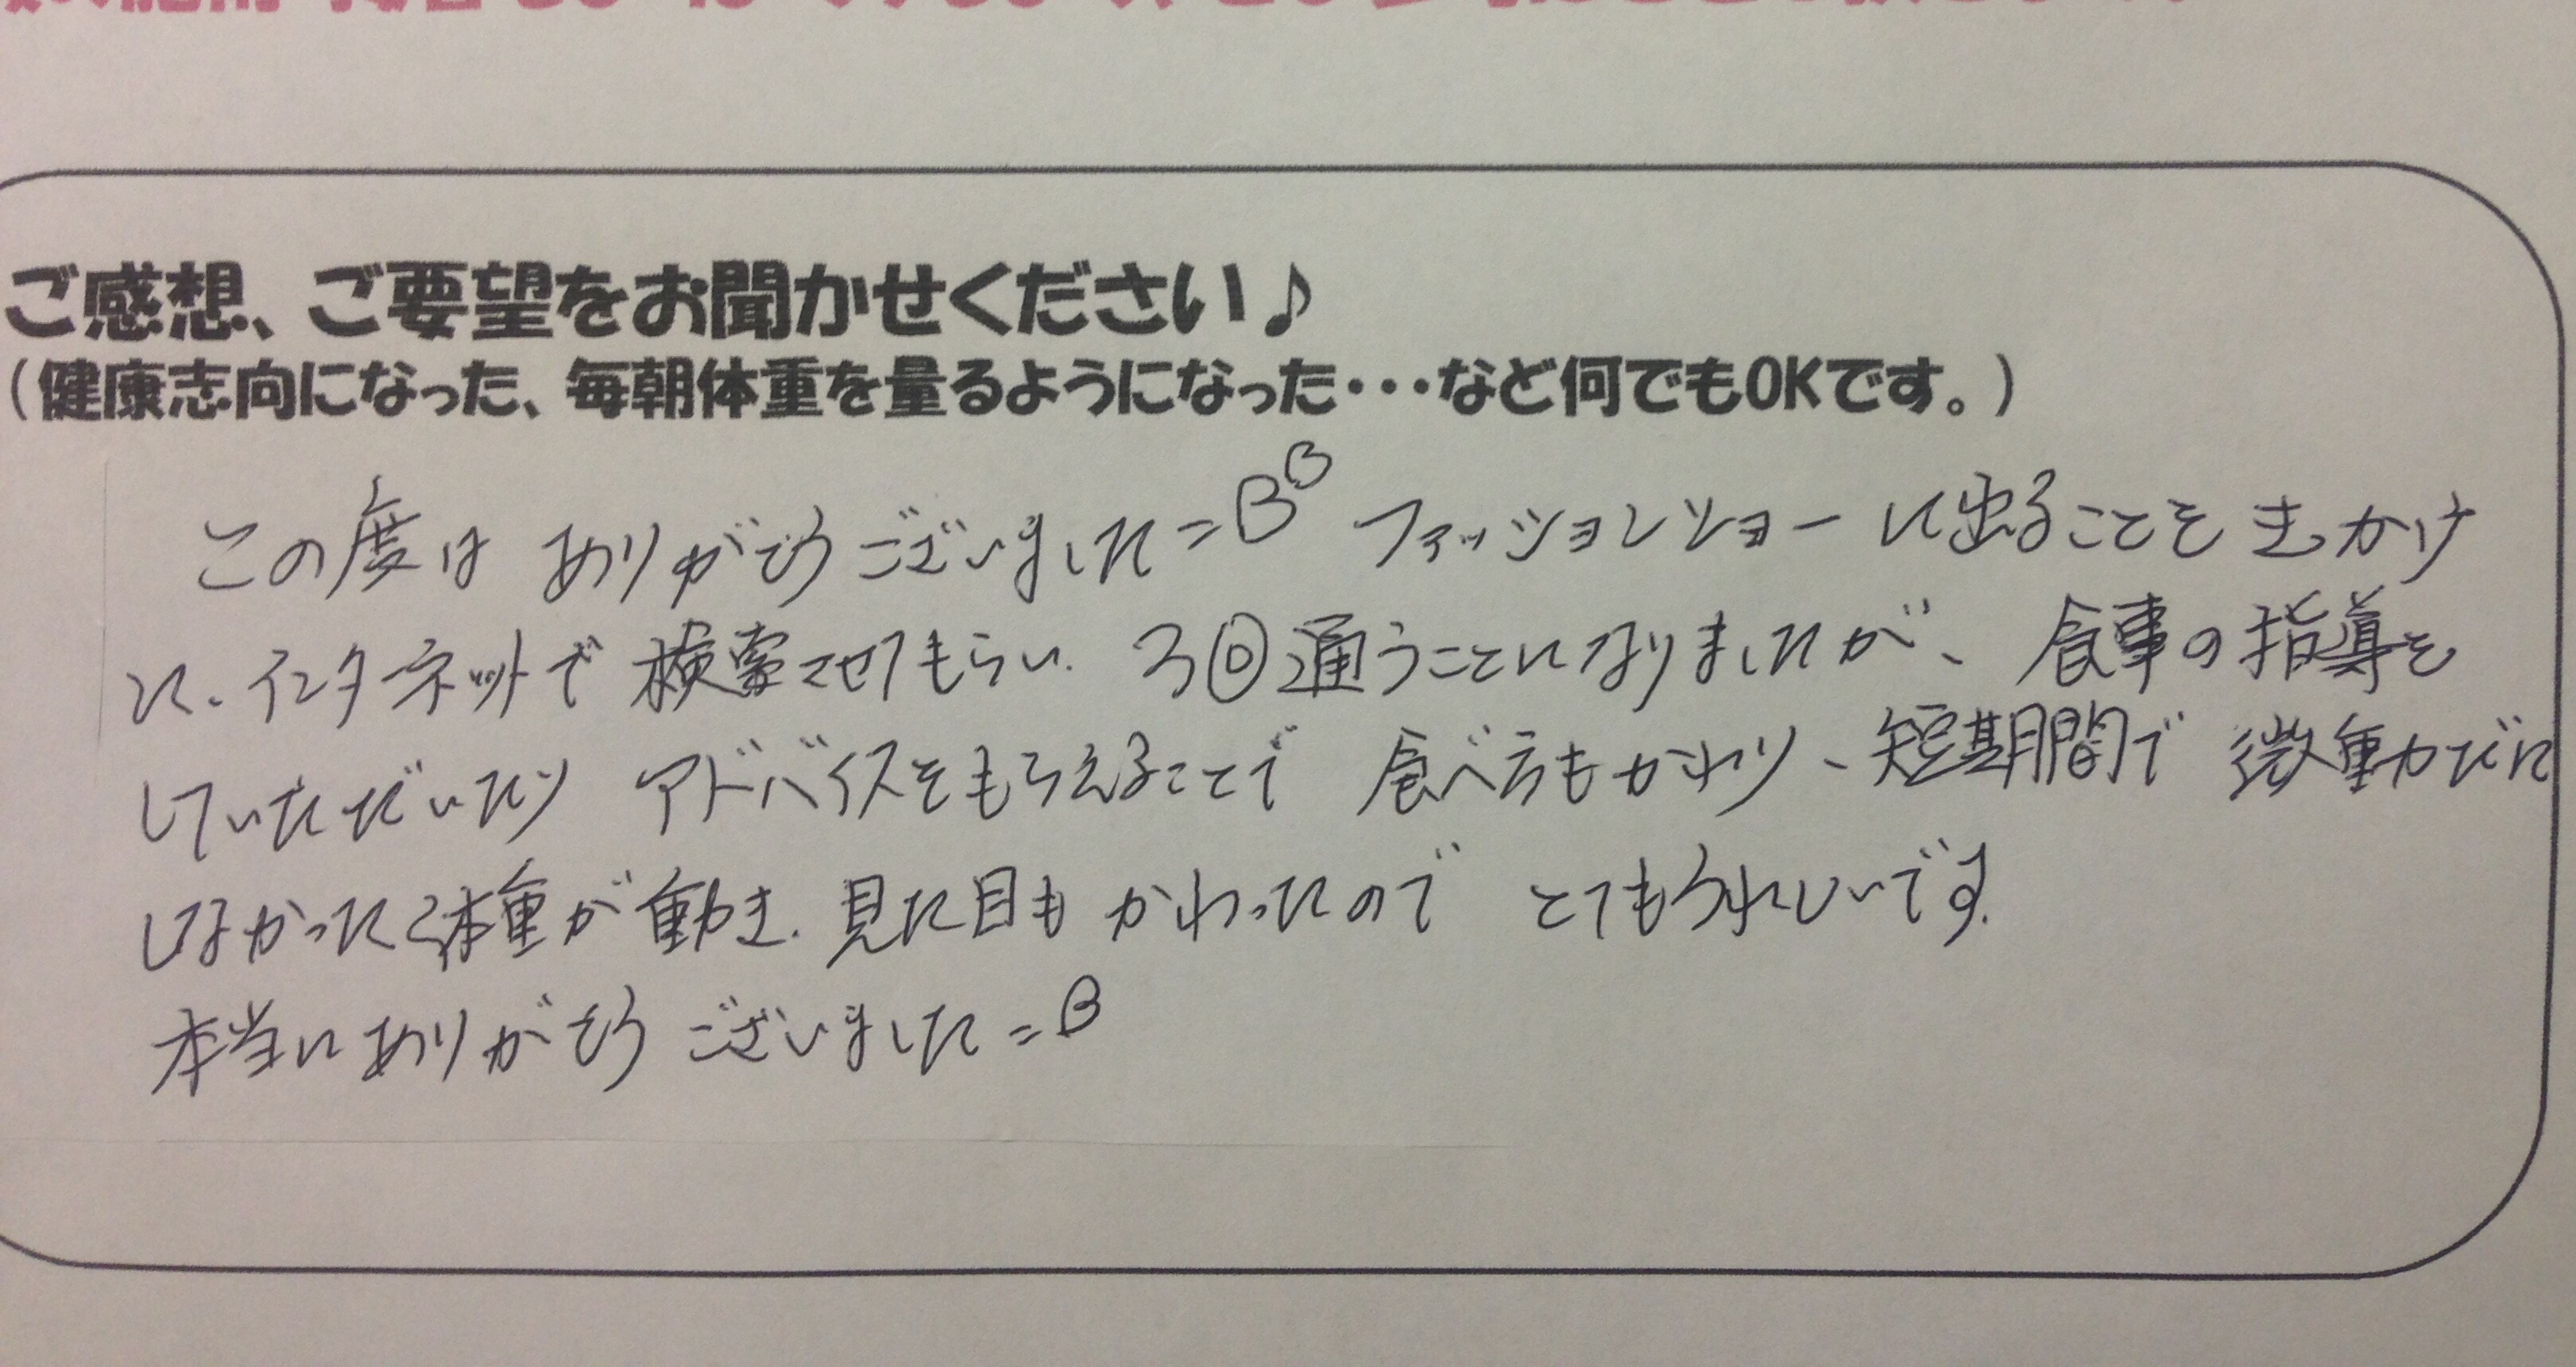 ご感想、ご要望をお聞かせください♪
(健康志向になった、毎朝体重を量るようになった・・・など何でもOKです。)
この度は ありがとうございました ファッションショーに出ることをきっかけ
に、インターネットで検索させてもらい、3回通うことになりましたが、食事の指導を
していただいたり アドバイスをもらえることで 食べ方もかわり、短期間で 微動だに
しなかった体重が動き、見た目も かわったので とてもうれしいです。
本当にありがとうございました